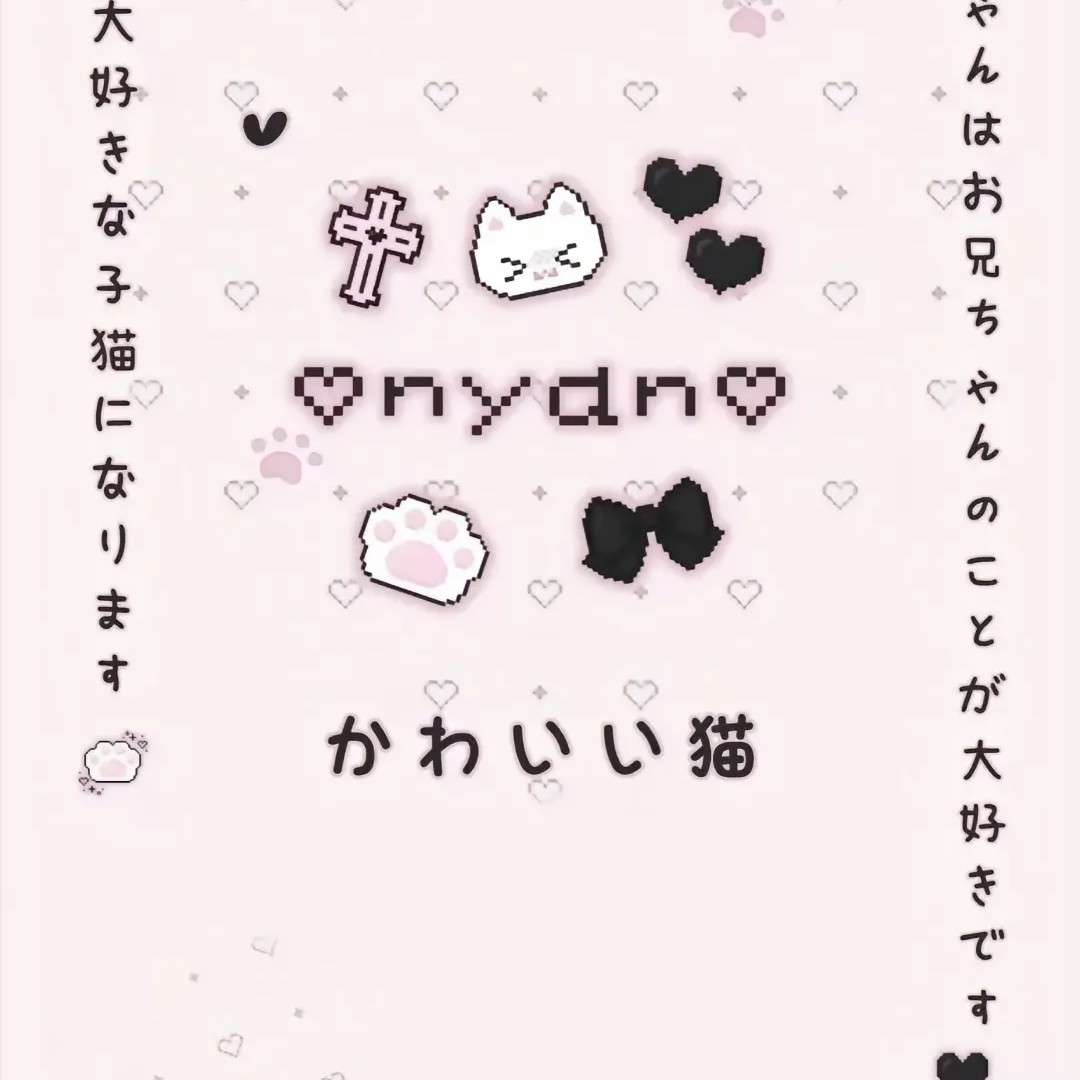 ゃんはお兄ちゃんのことが大好きです
♡nydn♡
かわいい猫
大好きな子猫になります